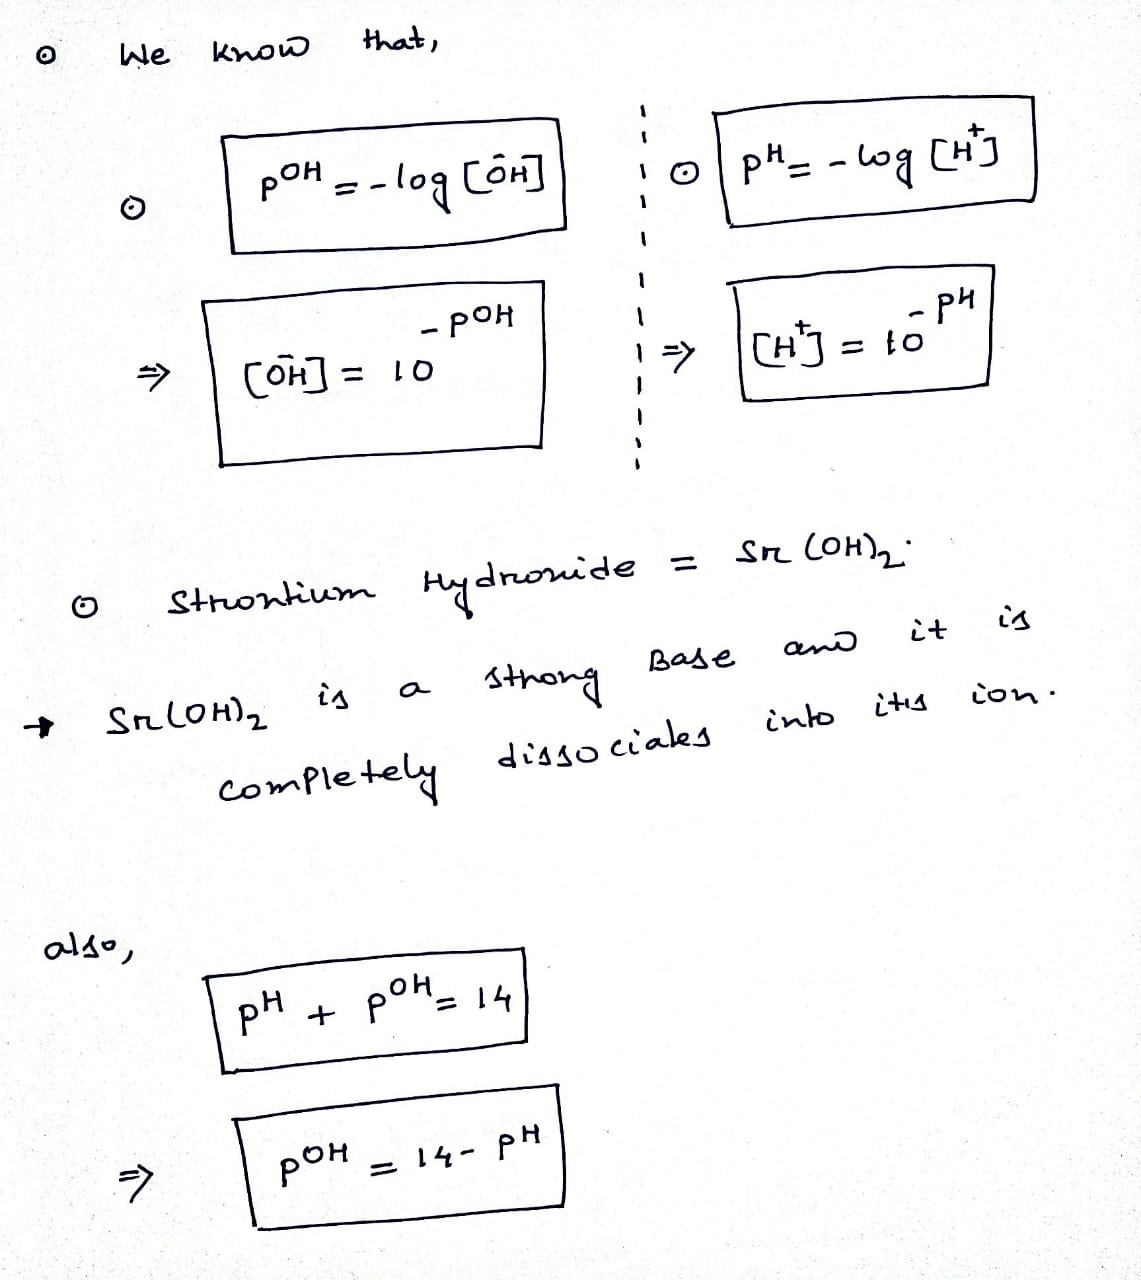 ⊙ We know that,
⊙ pOH = -log [ŌH]
⇒ [ŌH] = 10^-pOH
⊙ pH = -log [H⁺]
⇒ [H⁺] = 10^-pH
⊙ Strontium Hydroxide = Sr(OH)₂.
→ Sr(OH)₂ is a strong Base and it is
completely dissociates into its ion.
also,
pH + pOH = 14
⇒ pOH = 14 - pH